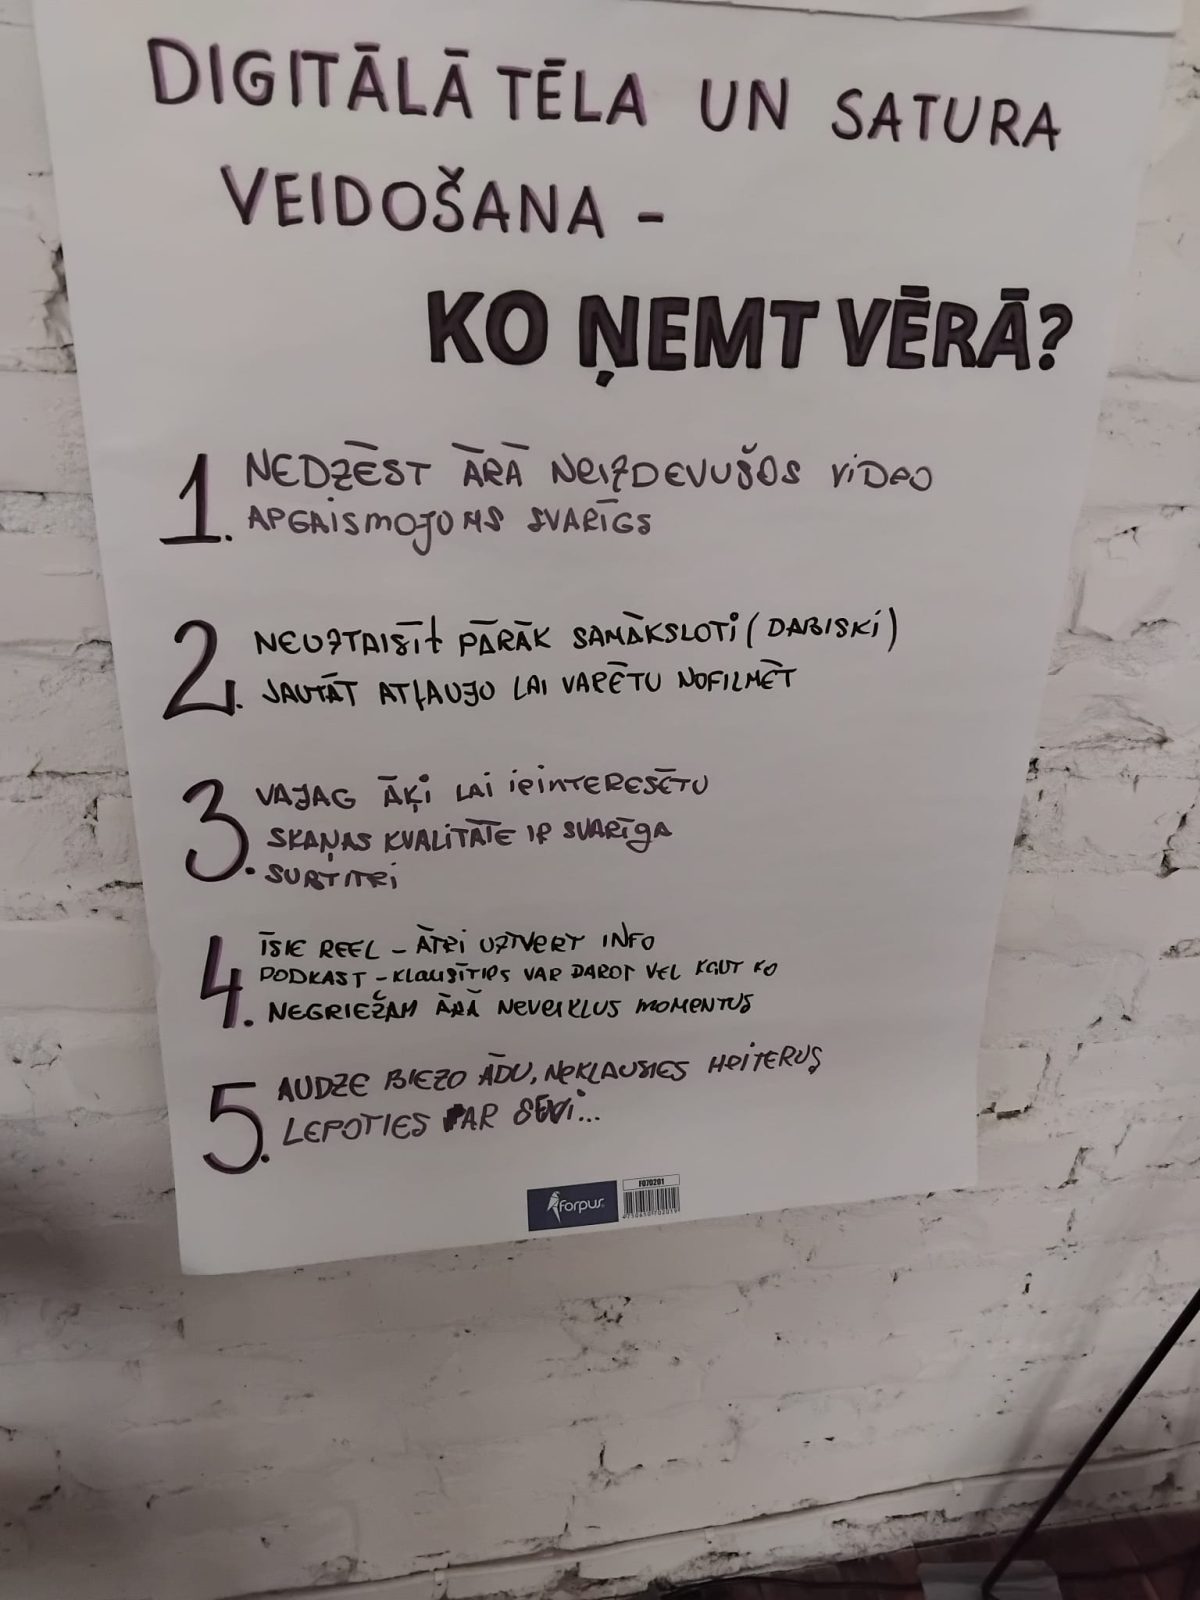 DIGITĀLĀ TĒLA UN SATURA
VEIDOŠANA -
KO ŅEMT VĒRĀ?
1. NEDZĒST ĀRĀ NEIZDEVUŠOS VIDEO
APGAISMOJUMS SVARĪGS
2. NEUZTAISĪT PĀRĀK SAMĀKSLOTI (DABISKI)
JAUTĀT ATĻAUJU LAI VARĒTU NOFILMĒT
3. VAJAG ĀĶI LAI IEINTERESĒTU
SKAŅAS KVALITĀTE IR SVARĪGA
SUBTITRI
4. ĪSIE REEL - ĀTRI UZTVERT INFO
PODKAST - KLAUSĪTIES VAR DAROT VEL KAUT KO
NEGRIEŽAM ĀRĀ NEVEIKLUS MOMENTUS
5. AUDZE BIEZO ĀDU, NEKLAUSIES HEITERUS
LEPOTIES PAR SEVI...
forpus
F070201